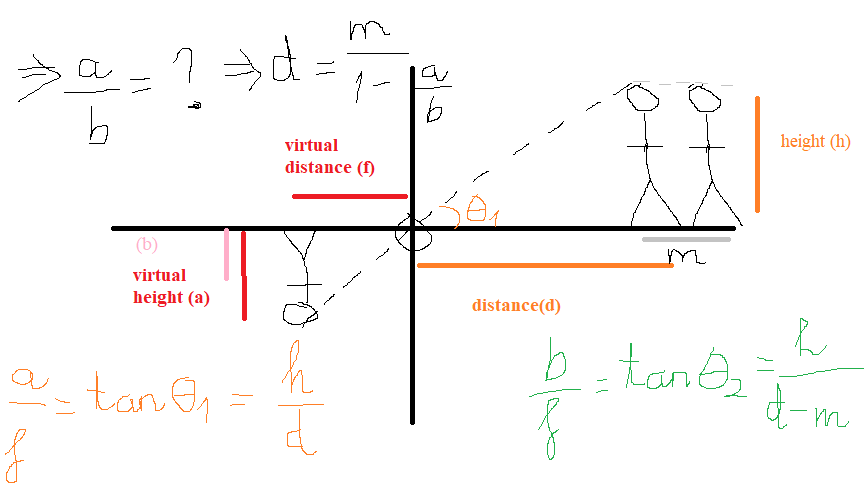 ⇒ a/b = ? ⇒ d = m/(1 - a/b)
virtual
distance (f)
height (h)
θ1
(b)
virtual
height (a)
m
distance(d)
a/f = tanθ1 = h/d
b/f = tanθ2 = h/(d-m)